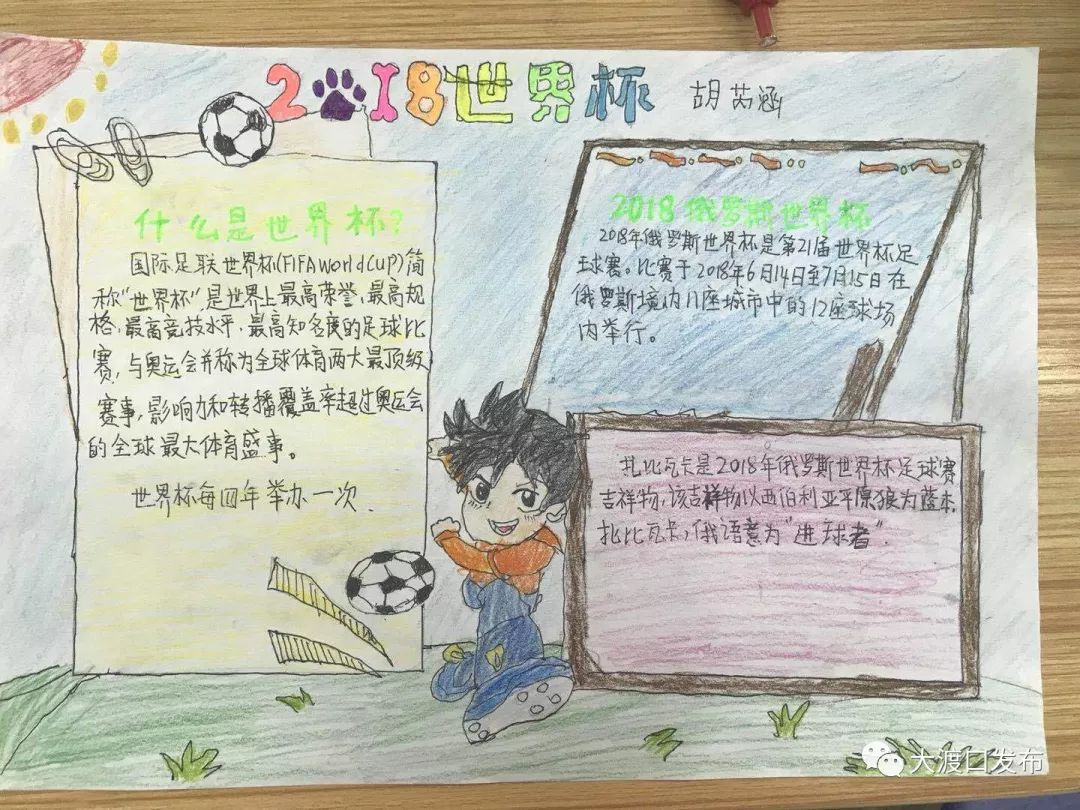 2018世界杯
胡芮涵
什么是世界杯?
国际足联世界杯(FIFA World Cup)简
称"世界杯",是世界上最高荣誉,最高规
格,最高竞技水平,最高知名度的足球比
赛,与奥运会并称为全球体育两大最顶级
赛事,影响力和转播覆盖率超过奥运会
的全球最大体育盛事。
世界杯每四年举办一次.
2018俄罗斯世界杯
2018年俄罗斯世界杯是第21届世界杯足
球赛。比赛于2018年6月14日至7月15日在
俄罗斯境内11座城市中的12座球场
内举行。
扎比瓦卡是2018年俄罗斯世界杯足球赛
吉祥物,该吉祥物以西伯利亚平原狼为蓝本.
扎比瓦卡,俄语意为"进球者".
大渡口发布